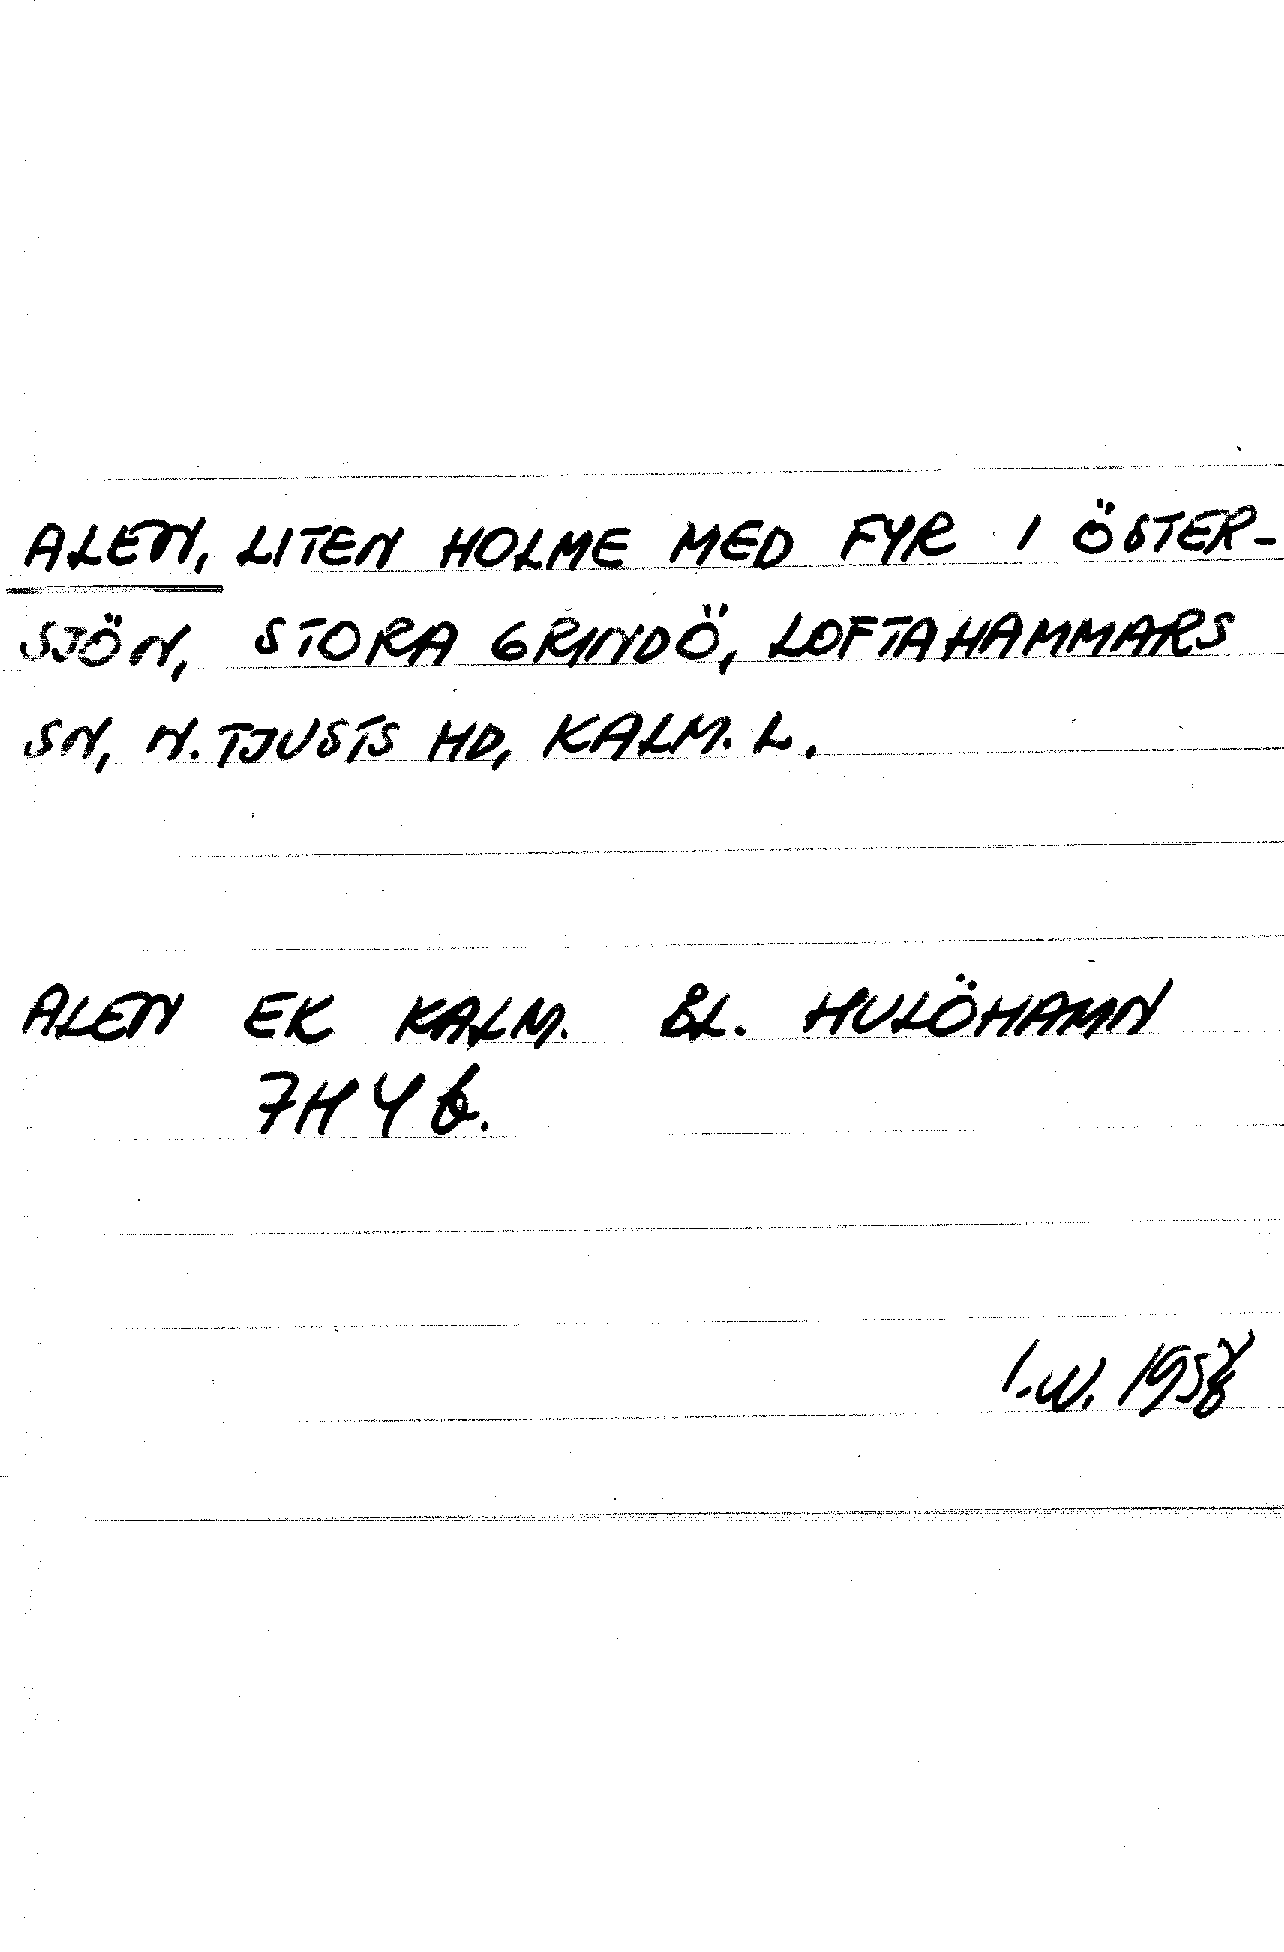 ALEN, LITEN HOLME MED FYR I ÖSTER-
SJÖN, STORA GRINDÖ, LOFTAHAMMARS
SN, N. TJUSTS HD, KALM. L.
ALEN EK KALM. BL. HULÖHAMN
7H 4 b.
I.W. 1958